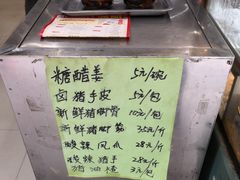 糖醋姜 5元/碗
卤猪手皮 5元/包
新鲜猪脚骨 10元/包
新鲜猪脚筋 35元/斤
酸辣凤爪 28元/斤
酸辣猪手 28元/斤
猪油渣 3元/包